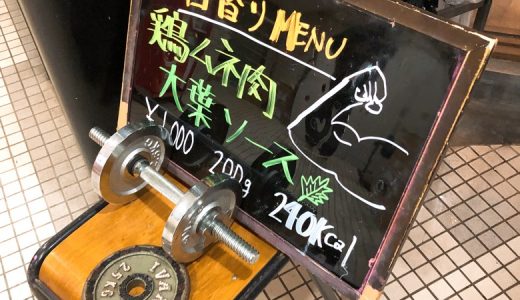 日替りMENU
鶏ムネ肉
大葉ソース
¥1,000 200g 240Kcal
2.5KG